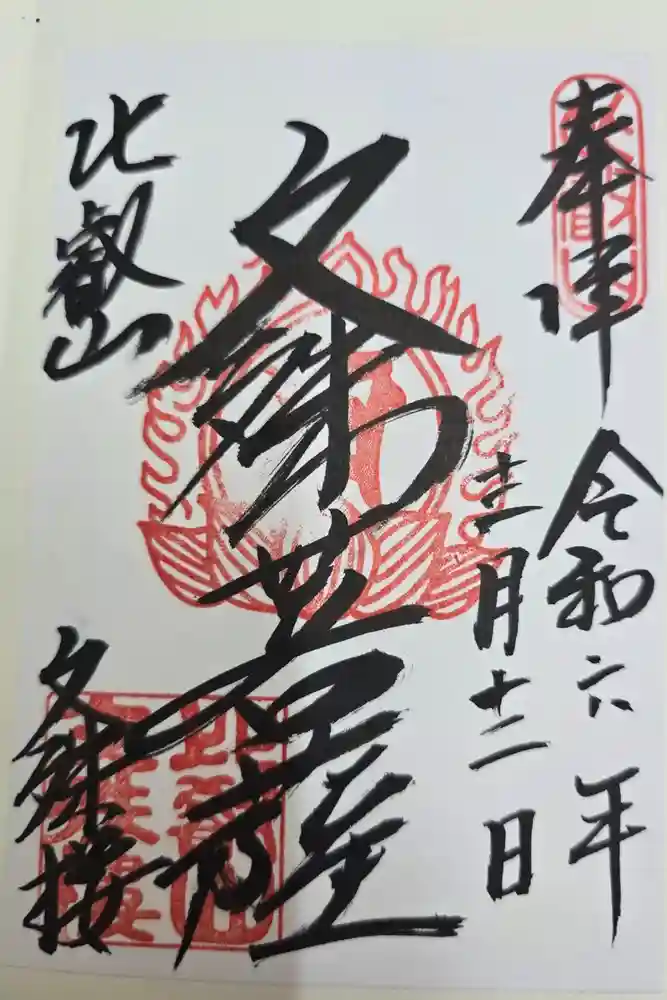 奉拝
令和六年
十二月十二日
文殊菩薩
比叡山
文殊楼